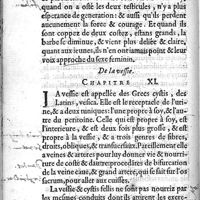 quand on a osté les deux testicules, n'y a plus
esperance de generation: & aussi qu'ils perdent
aucunement la force & courage. Et quand ils
sont couppez de deux costez, estans grands, la
barbe se diminue, & vient plus deliée & claire,
quant aux ieunes, ils n'en ont iamais point & leur
voix approche du sexe feminin.
De la vessie.
CHAPITRE XI.
LA vessie est appellée des Grecs cystis, des
Latins, vesica. Elle est le receptacle de l'uri-
ne, & a deux tuniques: l'une propre à soy, & l'au-
tre du peritoine. Celle qui est propre à soy, est
l'interieure, & est deux fois plus grosse, & est
propre à la vessie, & a trois genres de fibres,
droits, obliques, & transuersaux. Pareillement elle
a veines & arteres pour luy donner vie & nourri-
ture de costé & d'autre procedées de bifurcation
de la veine caue, & grand artere, qui se fait sur l'os
sacrum, pour aller aux cuisses.
La vessie & cystis fellis ne sont pas nourris par
les mesmes conduits dont ils attirent les excre-